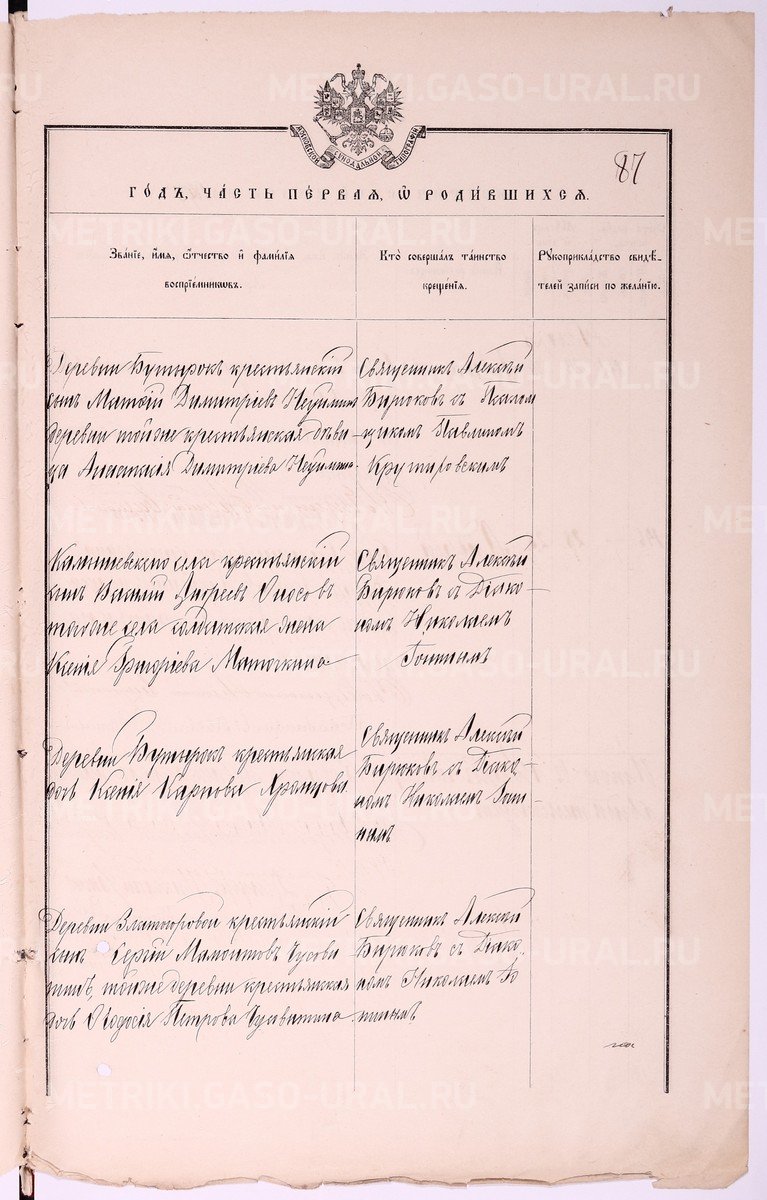 МОСКОВСКОЙ СИНОДАЛЬНОЙ ТИПОГРАФІИ
87
ГОДЪ, ЧАСТЬ ПЕРВАЯ, Ѿ РОДИВШИХСЯ.
Званіе, имя, отчество и фамилія
воспріемниковъ.
Кто совершалъ таинство
крещенія.
Рукоприкладство свидѣ-
телей записи по желанію.
Деревни Бутырокъ крестьянскій
сынъ Матѳій Димитріевъ Неуимин
деревни тойже крестьянская дѣви-
ца Анастасія Димитріева Неуимина
Священникъ Алексѣй
Бирюковъ съ Псалом
щикомъ Павлиномъ
Крутиховскимъ
Камышевскаго села крестьянскій
сынъ Василій Андреевъ Оносовъ
тогоже села солдатская жена
Ксенія Григоріева Маточкина
Священникъ Алексѣй
Бирюковъ съ Діако-
номъ Николаемъ
Топинымъ
Деревни Бутырокъ крестьянская
дочь Ксенія Карпова Храмцова
Священникъ Алексѣй
Бирюковъ съ Діако-
номъ Николаемъ Топи-
нымъ
Деревни Златогоровой крестьянскій
сынъ Сергій Мамонтовъ Чусови
тинъ, тойже деревни крестьянская
дочь Ѳеодосія Петрова Чусовитина
Священникъ Алексѣй
Бирюковъ съ Діако-
номъ Николаемъ То
пинымъ
METRIKI.GASO-URAL.RU